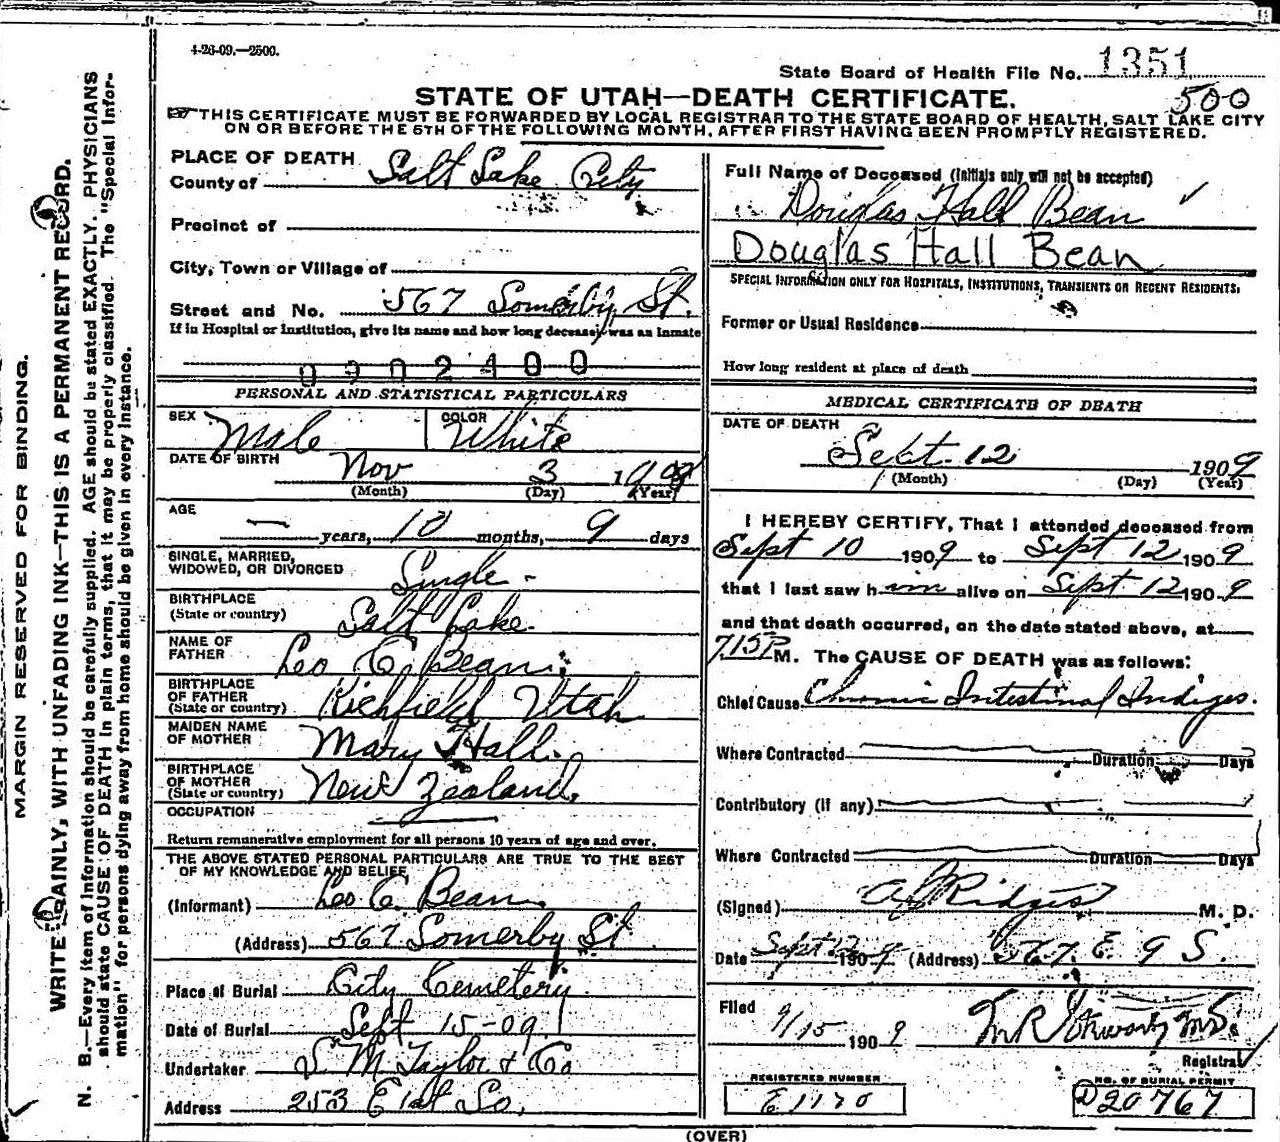 4-26-09.—2500.
State Board of Health File No. 1351
STATE OF UTAH—DEATH CERTIFICATE.
500
THIS CERTIFICATE MUST BE FORWARDED BY LOCAL REGISTRAR TO THE STATE BOARD OF HEALTH, SALT LAKE CITY
ON OR BEFORE THE 5TH OF THE FOLLOWING MONTH, AFTER FIRST HAVING BEEN PROMPTLY REGISTERED.
MARGIN RESERVED FOR BINDING.
WRITE PLAINLY, WITH UNFADING INK—THIS IS A PERMANENT RECORD.
N. B.—Every item of information should be carefully supplied. AGE should be stated EXACTLY. PHYSICIANS
should state CAUSE OF DEATH in plain terms, that it may be properly classified. The "Special Infor-
mation" for persons dying away from home should be given in every instance.
PLACE OF DEATH
County of Salt Lake City
Precinct of
City, Town or Village of
Street and No. 567 Somerby St.
If in Hospital or Institution, give its name and how long deceased was an inmate
0902400
PERSONAL AND STATISTICAL PARTICULARS
SEX Male COLOR White
DATE OF BIRTH Nov 3 1908
(Month) (Day) (Year)
AGE — years, 10 months, 9 days
SINGLE, MARRIED,
WIDOWED, OR DIVORCED Single -
BIRTHPLACE
(State or country) Salt Lake.
NAME OF
FATHER Leo C. Bean
BIRTHPLACE
OF FATHER
(State or country) Richfield Utah
MAIDEN NAME
OF MOTHER Mary Hall.
BIRTHPLACE
OF MOTHER
(State or country) New Zealand.
OCCUPATION
Return remunerative employment for all persons 10 years of age and over.
THE ABOVE STATED PERSONAL PARTICULARS ARE TRUE TO THE BEST
OF MY KNOWLEDGE AND BELIEF
(Informant) Leo C. Bean
(Address) 567 Somerby St
Place of Burial City Cemetery.
Date of Burial Sept 15-09
Undertaker S. M. Taylor & Co
Address 253 E 1st So.
Full Name of Deceased (Initials only will not be accepted)
Douglas Hall Bean
Douglas Hall Bean
SPECIAL INFORMATION ONLY FOR HOSPITALS, INSTITUTIONS, TRANSIENTS OR RECENT RESIDENTS.
Former or Usual Residence
How long resident at place of death
MEDICAL CERTIFICATE OF DEATH
DATE OF DEATH
Sept. 12 1909
(Month) (Day) (Year)
I HEREBY CERTIFY, That I attended deceased from
Sept 10 1909 to Sept 12 1909
that I last saw him alive on Sept 12 1909
and that death occurred, on the date stated above, at
715P M. The CAUSE OF DEATH was as follows:
Chief Cause Chronic Intestinal Indiges.
Where Contracted Duration Days
Contributory (if any)
Where Contracted Duration Days
(Signed) Ridges M. D.
Date Sept 12 1909 (Address) E. 9 S.
Filed 9/15 1909
Registrar
REGISTERED NUMBER
E1170
NO. OF BURIAL PERMIT
D20767
(OVER)